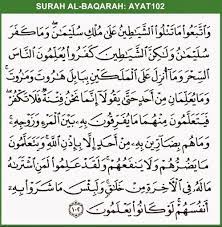 SURAH AL-BAQARAH: AYAT102
وَٱتَّبَعُوا۟ مَا تَتْلُوا۟ ٱلشَّيَـٰطِينُ عَلَىٰ مُلْكِ سُلَيْمَـٰنَ ۖ وَمَا كَفَرَ
سُلَيْمَـٰنُ وَلَـٰكِنَّ ٱلشَّيَـٰطِينَ كَفَرُوا۟ يُعَلِّمُونَ ٱلنَّاسَ
ٱلسِّحْرَ وَمَآ أُنزِلَ عَلَى ٱلْمَلَكَيْنِ بِبَابِلَ هَـٰرُوتَ وَمَـٰرُوتَ ۚ
وَمَا يُعَلِّمَانِ مِنْ أَحَدٍ حَتَّىٰ يَقُولَآ إِنَّمَا نَحْنُ فِتْنَةٌ فَلَا تَكْفُرْ ۖ
فَيَتَعَلَّمُونَ مِنْهُمَا مَا يُفَرِّقُونَ بِهِۦ بَيْنَ ٱلْمَرْءِ وَزَوْجِهِۦ ۚ
وَمَا هُم بِضَآرِّينَ بِهِۦ مِنْ أَحَدٍ إِلَّا بِإِذْنِ ٱللَّهِ ۚ وَيَتَعَلَّمُونَ
مَا يَضُرُّهُمْ وَلَا يَنفَعُهُمْ ۚ وَلَقَدْ عَلِمُوا۟ لَمَنِ ٱشْتَرَىٰهُ
مَا لَهُۥ فِى ٱلْـَٔاخِرَةِ مِنْ خَلَـٰقٍ ۚ وَلَبِئْسَ مَا شَرَوْا۟ بِهِۦٓ
أَنفُسَهُمْ ۚ لَوْ كَانُوا۟ يَعْلَمُونَ ١٠٢